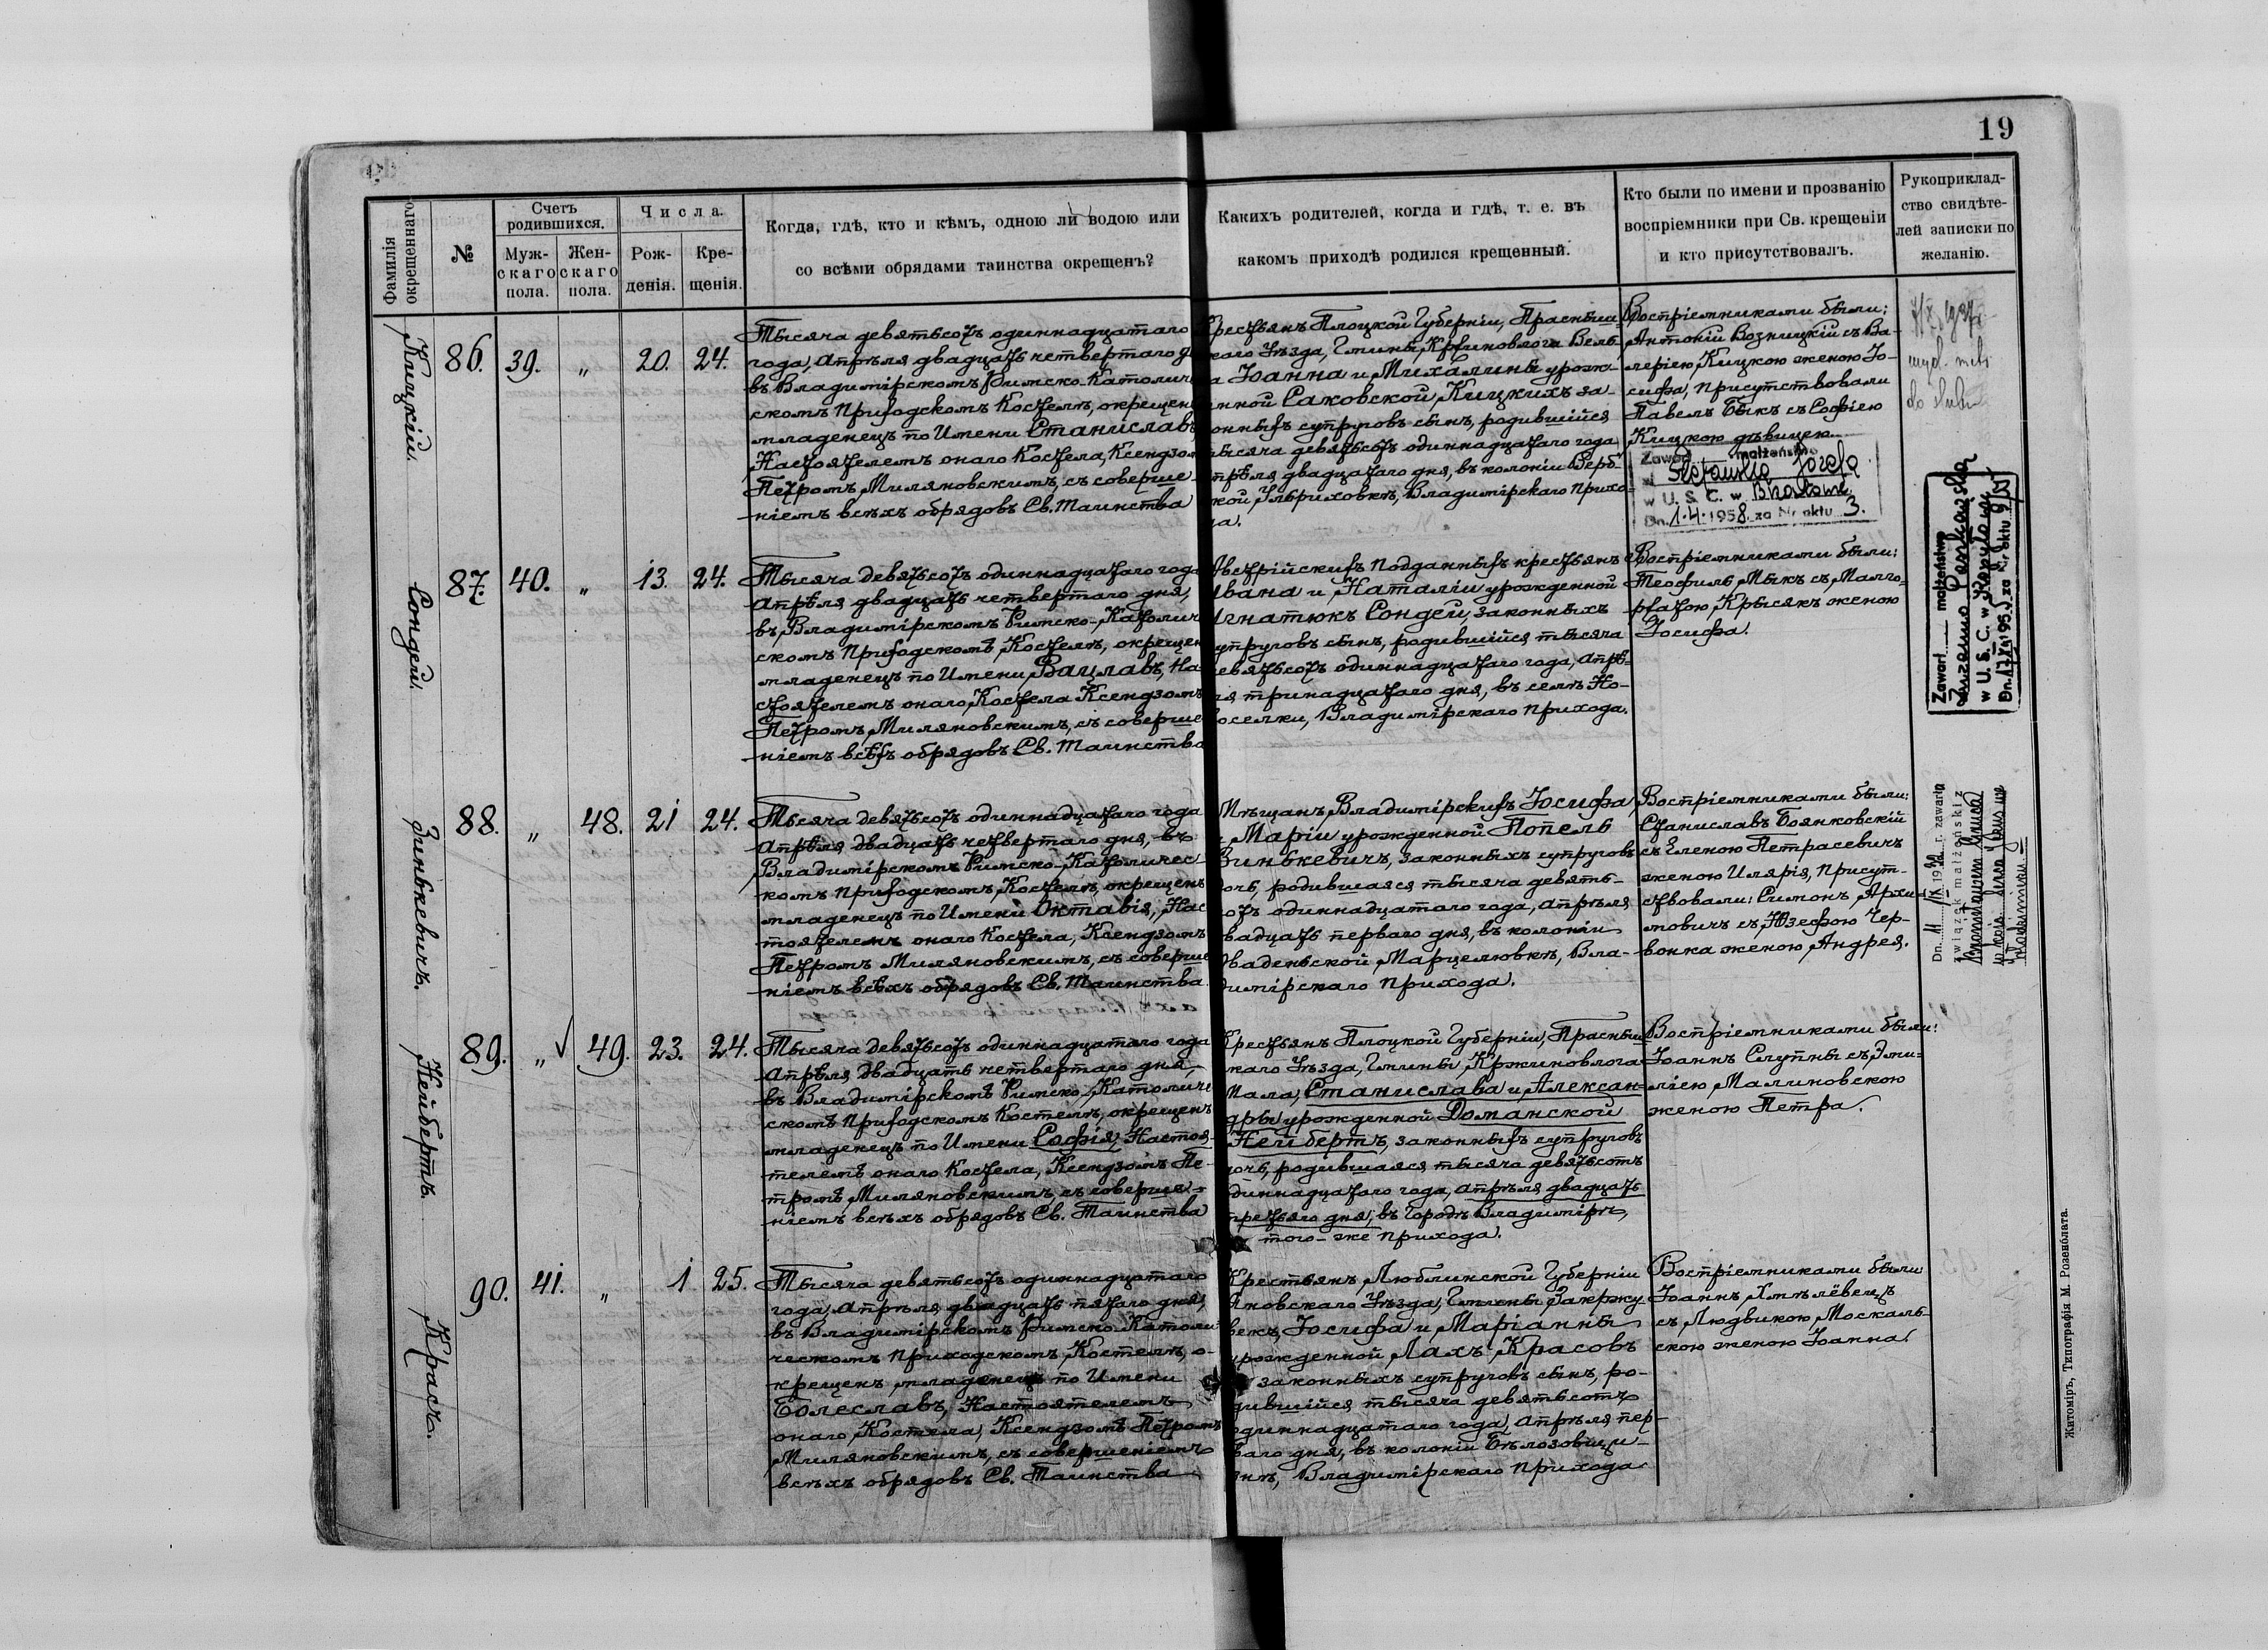 19
Фамилія окрещеннаго
№
Счетъ родившихся.
Муж-скаго пола.
Жен-скаго пола.
Числа.
Рож-денія.
Кре-щенія.
Когда, гдѣ, кто и кѣмъ, одною ли водою или
со всѣми обрядами таинства окрещенъ?
Какихъ родителей, когда и гдѣ, т. е. въ
какомъ приходѣ родился крещенный.
Кто были по имени и прозванію
воспріемники при Св. крещеніи
и кто присутствовалъ.
Рукоприклад-
ство свидѣте-
лей записки по
желанію.
Кицкій.
86. 39. „ 20. 24.
Тысяча девятьсотъ одиннадцатаго
года, Апрѣля двадцать четвертаго
въ Владимірскомъ Римско-Католиче
скомъ Приходскомъ Костелѣ, окрещен
младенецъ по Имени Станиславъ,
Настоятелемъ онаго Костела, Ксендзом
Петромъ Миляновскимъ, съ соверше-
ніемъ всѣхъ обрядовъ Св. Таинства
Крестьянъ Плоцкой Губерніи, Прасныш-
скаго Уѣзда, Гмины Крживовлога Вель-
ка Іоанна и Михалины урож-
енной Саковской, Кицкихъ за-
конныхъ супруговъ сынъ, родившійся
тысяча девятьсотъ одиннадцатаго года
Апрѣля двадцатаго дня, въ колоніи Верб-
ской Ульриховкѣ, Владимірскаго Прихо-
да.
Воспріемниками были:
Антоній Возницкій съ Ва-
леріею Кицкою женою Іо-
сифа, Присутствовали
Павелъ Быкъ съ Софіею
Кицкою дѣвицею.
Zawód małżeństwo
Józefa
w U. S. C. w
Dn. 1.4.1958. za Nr aktu 3.
do ślubu
Сондей.
87. 40. „ 13. 24.
Тысяча девятьсотъ одиннадцатаго года
Апрѣля двадцать четвертаго дня,
въ Владимірскомъ Римско-Католиче
скомъ Приходскомъ Костелѣ, окрещен
младенецъ по Имени Вацлавъ, На-
стоятелемъ онаго Костела Ксендзомъ
Петромъ Миляновскимъ, съ соверше
ніемъ всѣхъ обрядовъ Св. Таинства
Австрійскихъ Подданныхъ крестьянъ
Ивана и Наталіи урожденной
Игнатюкъ Сондей, законныхъ
супруговъ сынъ, родившійся тысяча
девятьсотъ одиннадцатаго года, Апрѣ-
ля тринадцатаго дня, въ селѣ Но-
воселки, Владимірскаго Прихода.
Воспріемниками были:
Теофиль Мыкъ съ Малго-
ржатою Крысякъ женою
Іосифа.
Zawarł małżeństwo
w U. S. C. w
Зинькевичъ.
88. „ 48. 21 24.
Тысяча девятьсотъ одиннадцатаго года
Апрѣля двадцать четвертаго дня, въ
Владимірскомъ Римско-Католичес
комъ Приходскомъ Костелѣ, окрещенъ
младенецъ по Имени Октавія, Нас
тоятелемъ онаго Костела, Ксендзомъ
Петромъ Миляновскимъ, съ соверше
ніемъ всѣхъ обрядовъ Св. Таинства.
Мѣщанъ Владимірскихъ Іосифа
и Маріи урожденной Попель
Зинькевичъ, законныхъ супруговъ
дочь, родившаяся тысяча девять-
сотъ одиннадцатаго года, Апрѣля
двадцать перваго дня, въ колоніи
Марцелювкѣ, Вла-
димірскаго Прихода.
Воспріемниками были:
Станиславъ Боянковскій
съ Еленою Петрасевичъ
женою Иларія, Присут-
ствовали: Симонъ Архи-
мовичъ съ Юзефою Чер-
вонка женою Андрея.
Dn. 11/IX 1932 r. zawarła
związek małżeński z
Нейбертъ.
89. „ √ 49. 23. 24.
Тысяча девятьсотъ одиннадцатаго года
Апрѣля двадцать четвертаго дня,
въ Владимірскомъ Римско-Католиче
скомъ Приходскомъ Костелѣ, окрещенъ
младенецъ по Имени Софія, Настоя-
телемъ онаго Костела, Ксендзомъ Пе-
тромъ Миляновскимъ, съ соверше-
ніемъ всѣхъ обрядовъ Св. Таинства
Крестьянъ Плоцкой Губерніи, Прасныш
скаго Уѣзда, Гмины, Крживовлога
Мала, Станислава и Алексан-
дры урожденной Доманской
Нейбертъ, законныхъ супруговъ
дочь, родившаяся тысяча девятьсотъ
одиннадцатаго года, Апрѣля двадцать
третьяго дня, въ Городѣ Владимірѣ,
того-же Прихода.
Воспріемниками были:
Іоаннъ Слупны съ Эми-
ліею Малиновскою
женою Петра.
Красъ.
90. 41. „ 1 25.
Тысяча девятьсотъ одиннадцатаго
года, Апрѣля двадцать пятаго дня,
въ Владимірскомъ Римско-Католи
ческомъ Приходскомъ Костелѣ, о-
крещенъ младенецъ по Имени
Болеславъ, Настоятелемъ
онаго Костела, Ксендзомъ Петромъ
Миляновскимъ, съ совершеніемъ
всѣхъ обрядовъ Св. Таинства
Крестьянъ Люблинской Губерніи
Яновскаго Уѣзда, Гмины Закржу
векъ, Іосифа и Маріанны
урожденной Лахъ Красовъ
законныхъ супруговъ сынъ, ро-
дившійся тысяча девятьсотъ
одиннадцатаго года, Апрѣля пер-
ваго дня, въ колоніи Бѣлозовщи-
знѣ, Владимірскаго Прихода
Воспріемниками были
Іоаннъ Хмѣлёвецъ
съ Людвикою Москаль-
скою женою Іоанна.
Житоміръ, Типографія М. Розенблата.